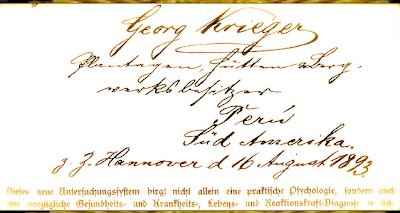 Georg Krieger
Plantagen, Hütten u Berg-
werksbesitzer
Perú
Süd Amerika.
z. Z. Hannover d 16 August 1893
Dieses neue Untersuchungssystem birgt nicht allein eine praktische Psychologie, sondern auch
eine vorzügliche Gesundheits- und Krankheits-, Lebens- und Reaktionskraft-Diagnose in sich